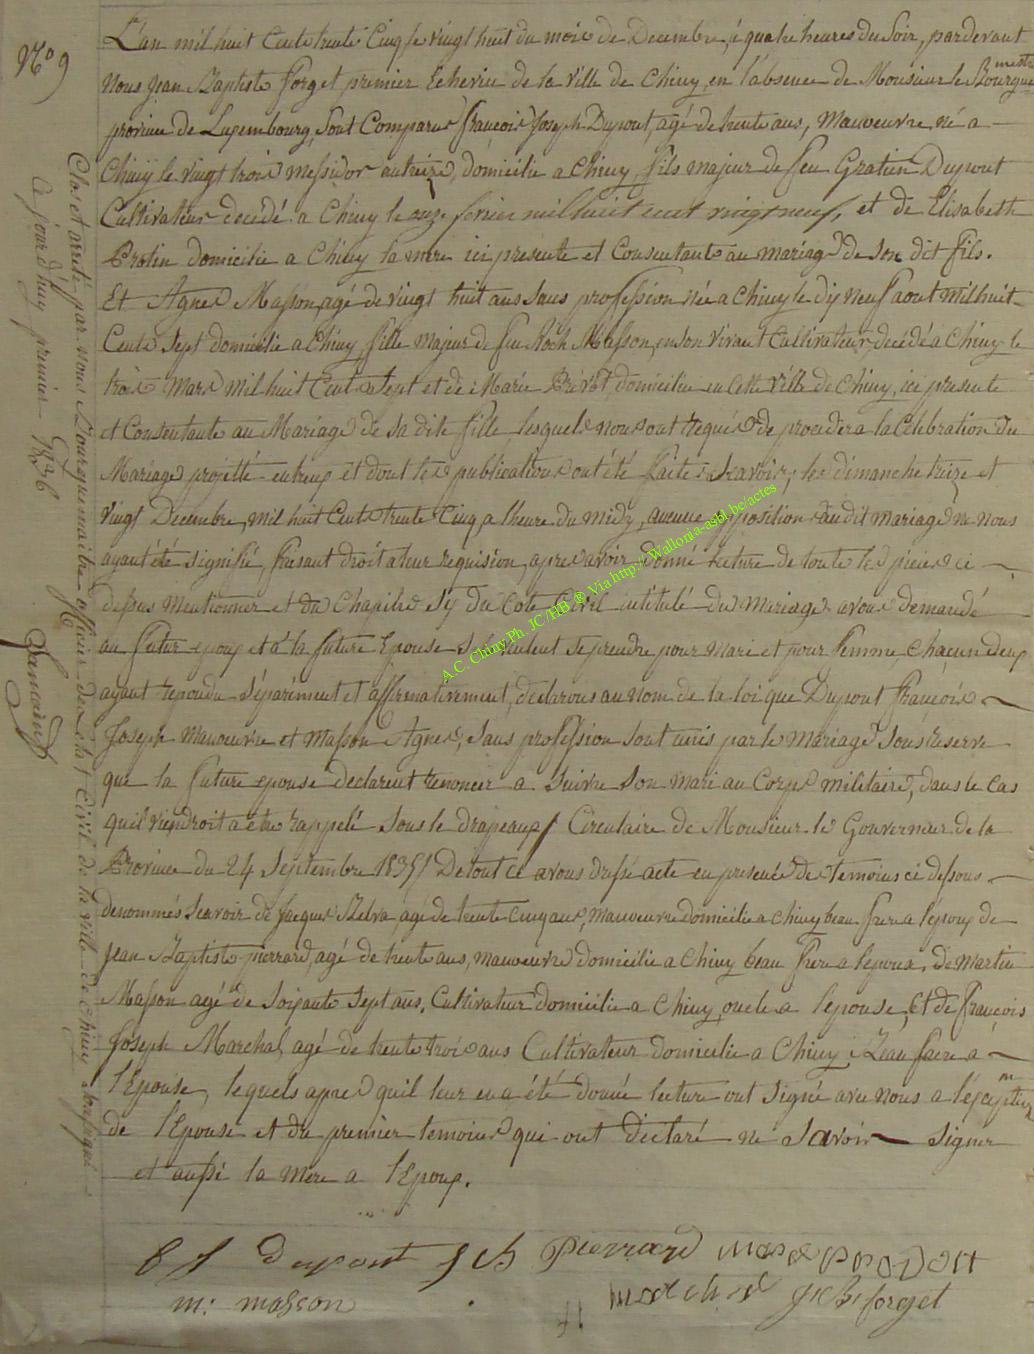 N° 9
L'an mil huit Cents trente Cinq, le vingt huit du mois de Decembre, à quatre heures du Soir, pardevant
Nous Jean Baptiste Forget premier Echevin de la Ville de Chiny, en l'absence de Monsieur le Bourgue
mestre
province de Luxembourg, Sont Comparus François Joseph Dupont, agé de trente ans, Manoeuvre, né a
Chiny le vingt trois messidor an treize, domicilié a Chiny, fils majeur de feu Gratien Dupont
Cultivateur decédé a Chiny le onze fevrier mil huit cent vingt neuf, et de Elisabeth
Protin domicilié a Chiny la mere ici presente et Consentante au mariage de Son dit fils.
Et Agnes Masson, agé de vingt huit ans Sans profession née a Chiny le dix neuf aout mil huit
Cents Sept domiciliée a Chiny, fille Majeur de feu Roch Masson, en Son vivant Cultivateur decédé a Chiny le
trois Mars mil huit Cents Sept et de Marie Prévot, domicilié en Cette Ville de Chiny, ici presente
et Consentante au Mariage de Sa dite fille, lesquels nous ont requis de proceder a la Célébration du
Mariage projetté entreux et dont les publications ont été faites Scavoir, les dimanche treize et
vingt Decembre, mil huit Cents trente Cinq a lheure du midy, aucune opposition au dit mariage ne nous
ayant été Signifié, faisant droit a leur requision, apres avoir donné lecture de toute les pieces ci
dessus Mentionner et du Chapitre Six du Cote Civil intitulé du Mariage avons demandé
au futur epoux et à la future Epouse S'ils veulent Se prendre pour Mari et pour femme Chacun deux
ayant repondu Séparément et affirmativement, declarons au nom de la loi que Dupont François
Joseph Manoeuvre et Masson Agnes, Sans profession Sont unis par le Mariage Sous reserve
que la future epouse declarent renoncer a Suivre Son mari au Corps militaire, dans le Cas
quil viendroit a etre rappelé Sous le drapeaux / Circulaire de Monsieur le Gouverneur de la
Province du 24 Septembre 1835 / De tout ce avons dressé acte en presence de temoins ci dessous
denommés Scavoir de Jacques agé de trente cinq ans, manoeuvre domicilié a Chiny beau frere a lépoux de
Jean Baptiste pierrard, agé de trente ans, manoeuvre domicilié a Chiny beau frere a lepoux, de Martin
Masson agé de Soixante Sept ans, Cultivateur domicilié a Chiny, oncle a lepouse, Et de François
Joseph Marchal, agé de trente trois ans Cultivateur domicilié a Chiny Beau frere a
l'Epouse, lequels apres quil leur en a été donné lecture ont Signé avec nous a l'éxception
de l'Epouse et du premier temoins qui ont declaré ne Savoir Signer
et aussi la Mere a l'Epoux.
f j dupont j b pierrard
m. masson marchal j. b. forget
Clos et arrêté par nous Bourguemaitre officier de l'état Civil de la ville de Chiny Soussigné
Ce jourd'huy premier 1836
A.C. Chiny Ph. JC/HB ® Via http://Wallonia-asbl.be/actes